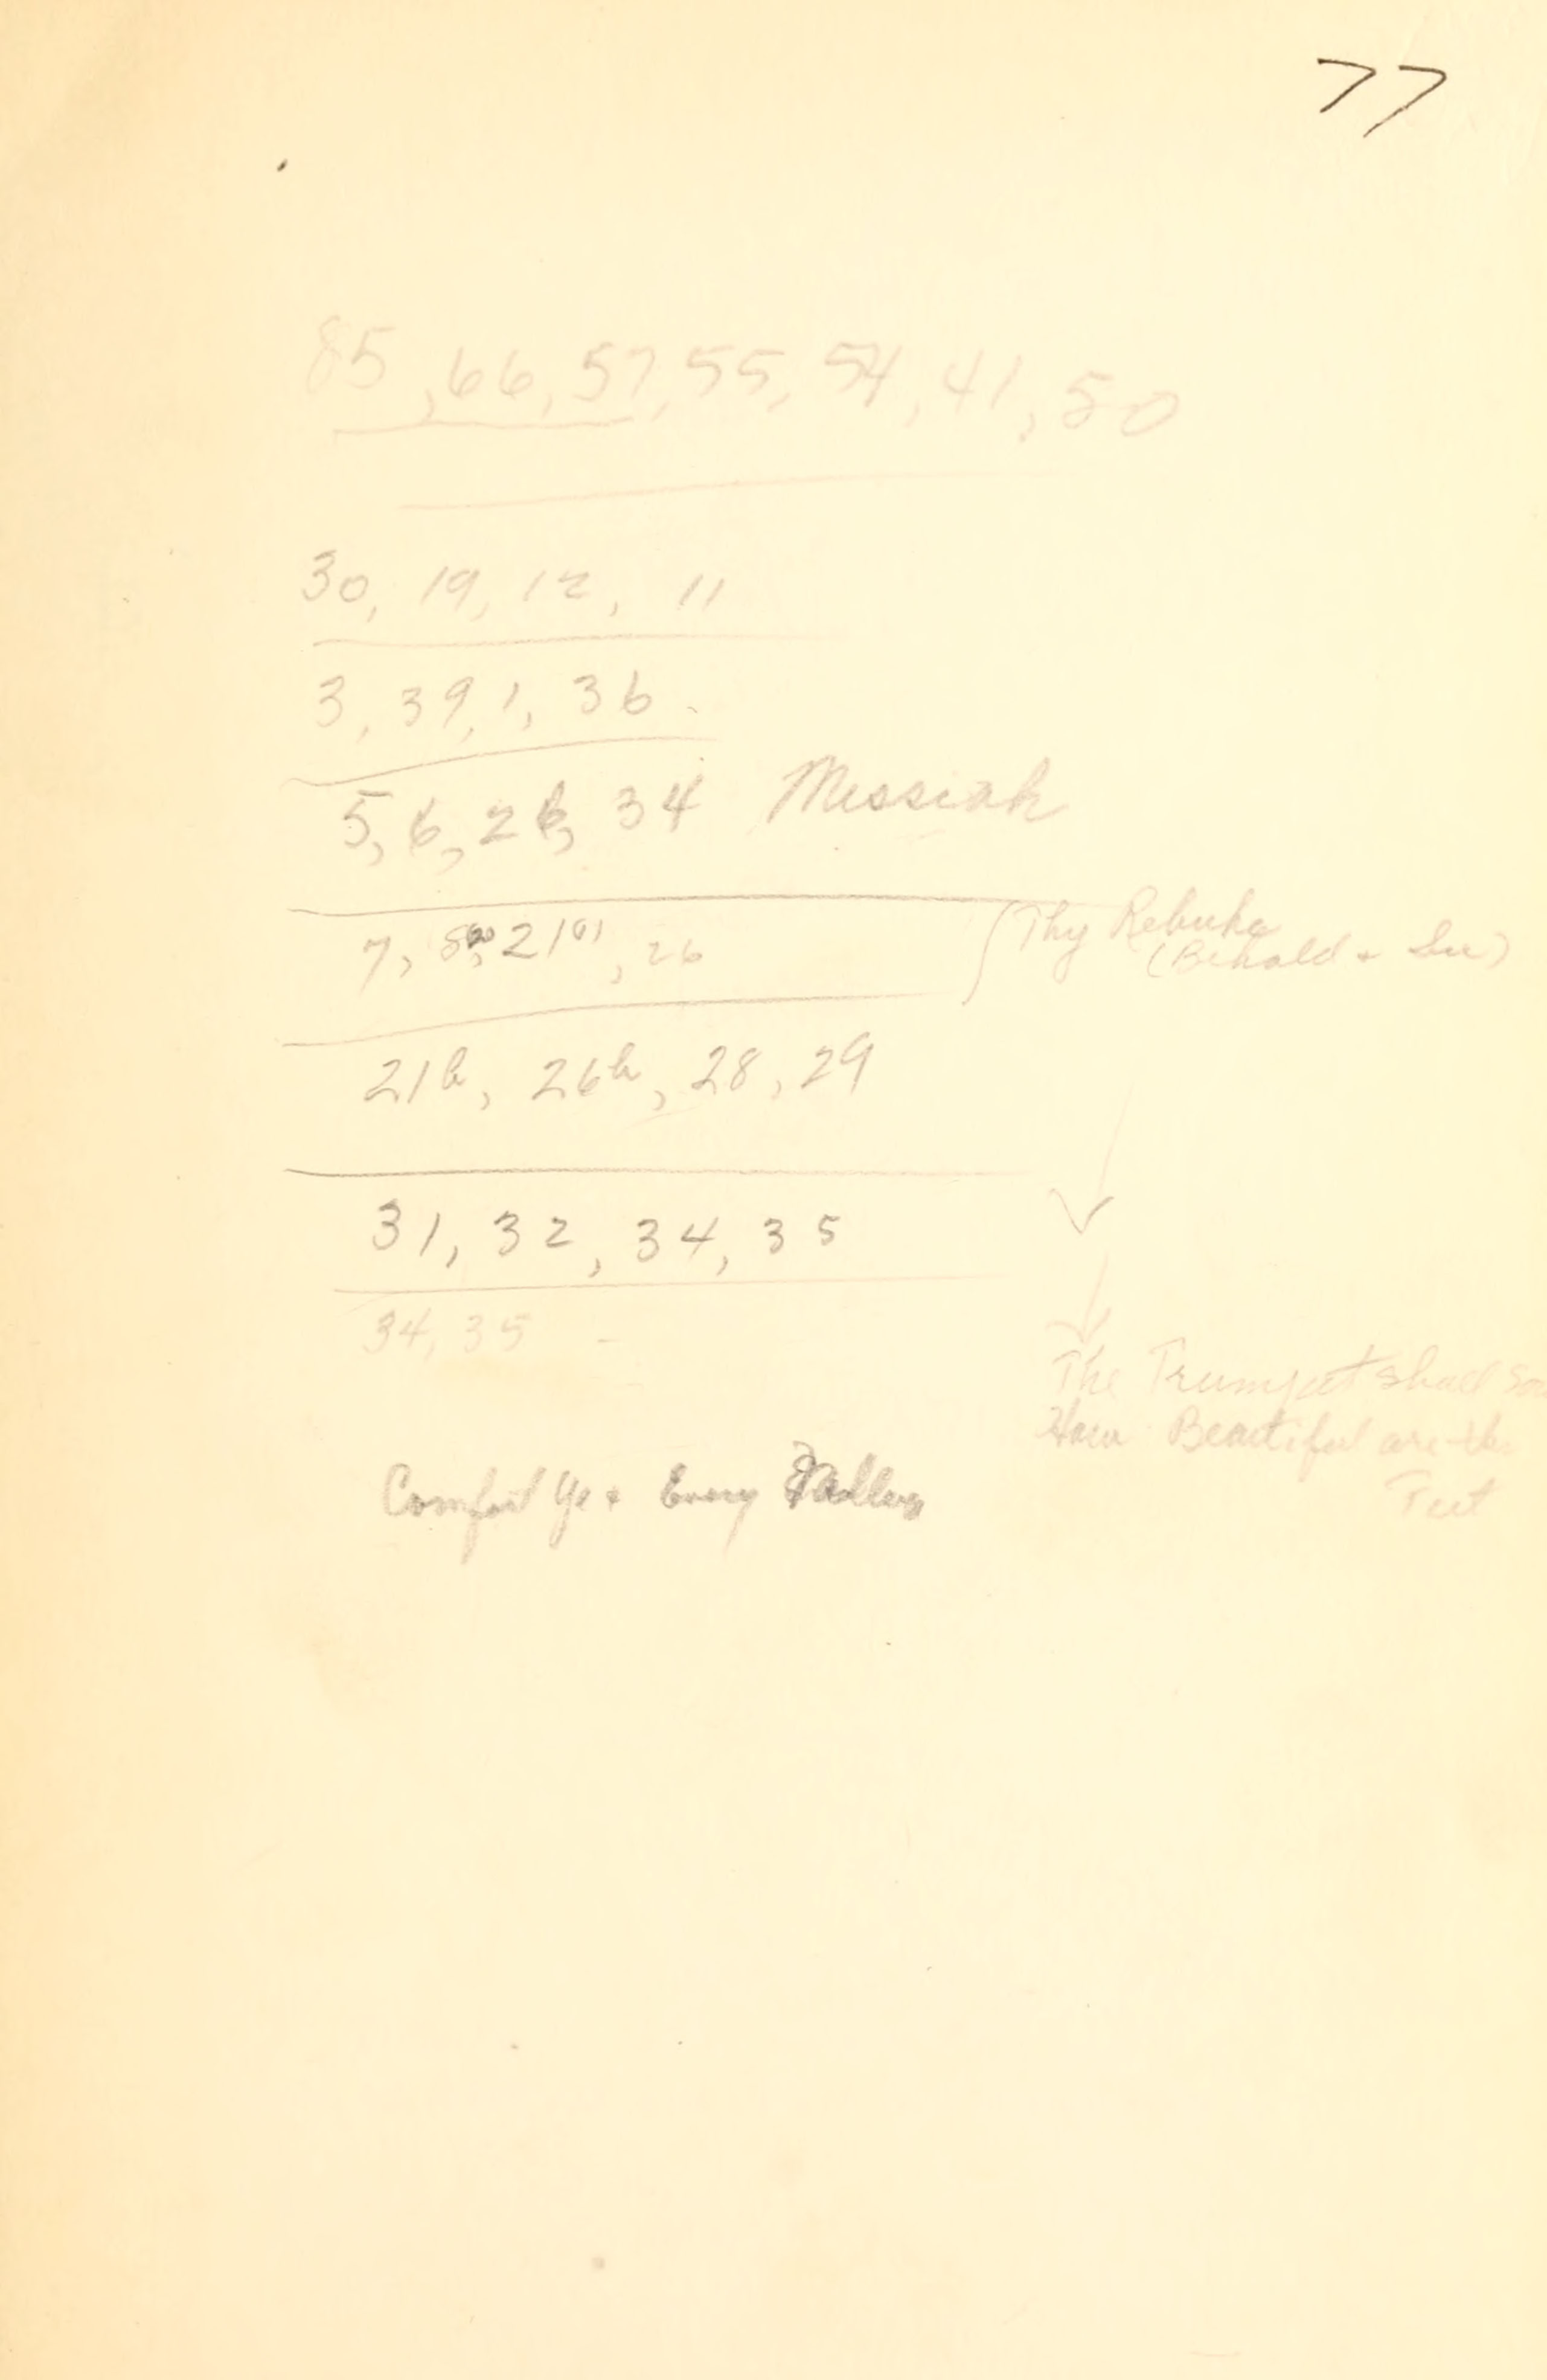 77
85, 66, 57, 55, 54, 41, 50
30, 19, 12, 11
3, 39, 1, 36
5, 6, 26, 34 Messiah
7, 21(a), 26
Thy Rebuke
(Behold + See)
21b, 26b, 28, 29
31, 32, 34, 35
34, 35
The Trumpet shall
How Beautiful are the
Feet
Comfort Ye + Every